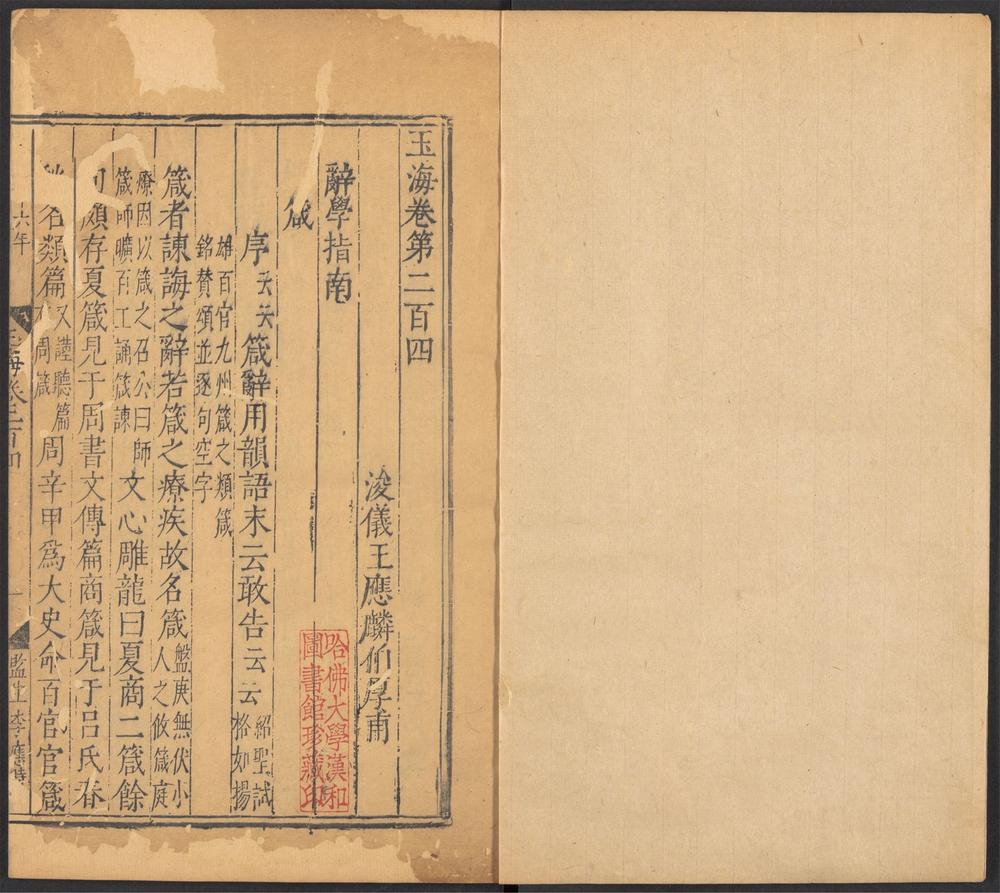 玉海卷第二百四
浚儀王應麟伯厚甫
辭學指南
箴
序云云箴辭用韻語末云敢告云云紹聖試格如揚
雄百官九州箴之類箴銘贊頌並逐句空字
箴者諫誨之辭若箴之療疾故名箴盤庚無伏小人之攸箴庭
療因以箴之召公曰師箴師曠百工誦箴諫文心雕龍曰夏商二箴餘
句頗存夏箴見于周書文傳篇商箴見于吕氏春
名類篇又謹聽篇周箴周辛甲爲大史命百官官箴
哈佛大學漢和圖書館珍藏印
六年
玉海卷二百四
一
監生李應時